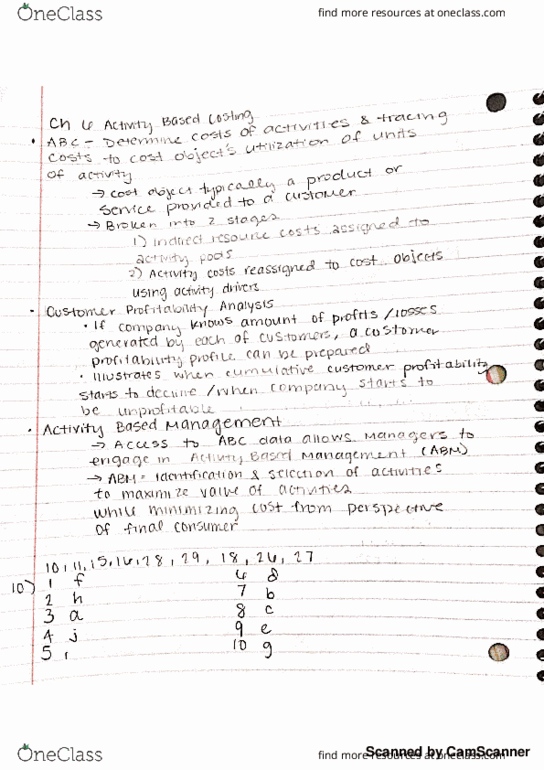 OneClass
find more resources at oneclass.com
Ch 6 Activity Based Costing
• ABC - Determine costs of activities & tracing
costs to cost object's utilization of units
of activity
→ cost object typically a product or
service provided to a customer
→ Broken into 2 stages
1) indirect resource costs assigned to
activity pools
2) Activity costs reassigned to cost objects
using activity drivers
• Customer Profitability Analysis
• If company knows amount of profits/losses
generated by each of customers, a customer
profitability profile can be prepared
• Illustrates when cumulative customer profitability
starts to decline / when company starts to
be unprofitable
• Activity Based Management
→ Access to ABC data allows managers to
engage in Activity Based Management (ABM)
→ ABM = identification & selection of activities
to maximize value of activities
while minimizing cost from perspective
of final consumer
10, 11, 15, 16, 28, 29, 18, 26, 27
10) 1 f 6 d
2 h 7 b
3 a 8 c
4 j 9 e
5 i 10 g
OneClass
find more resources at oneclass.com
Scanned by CamScanner